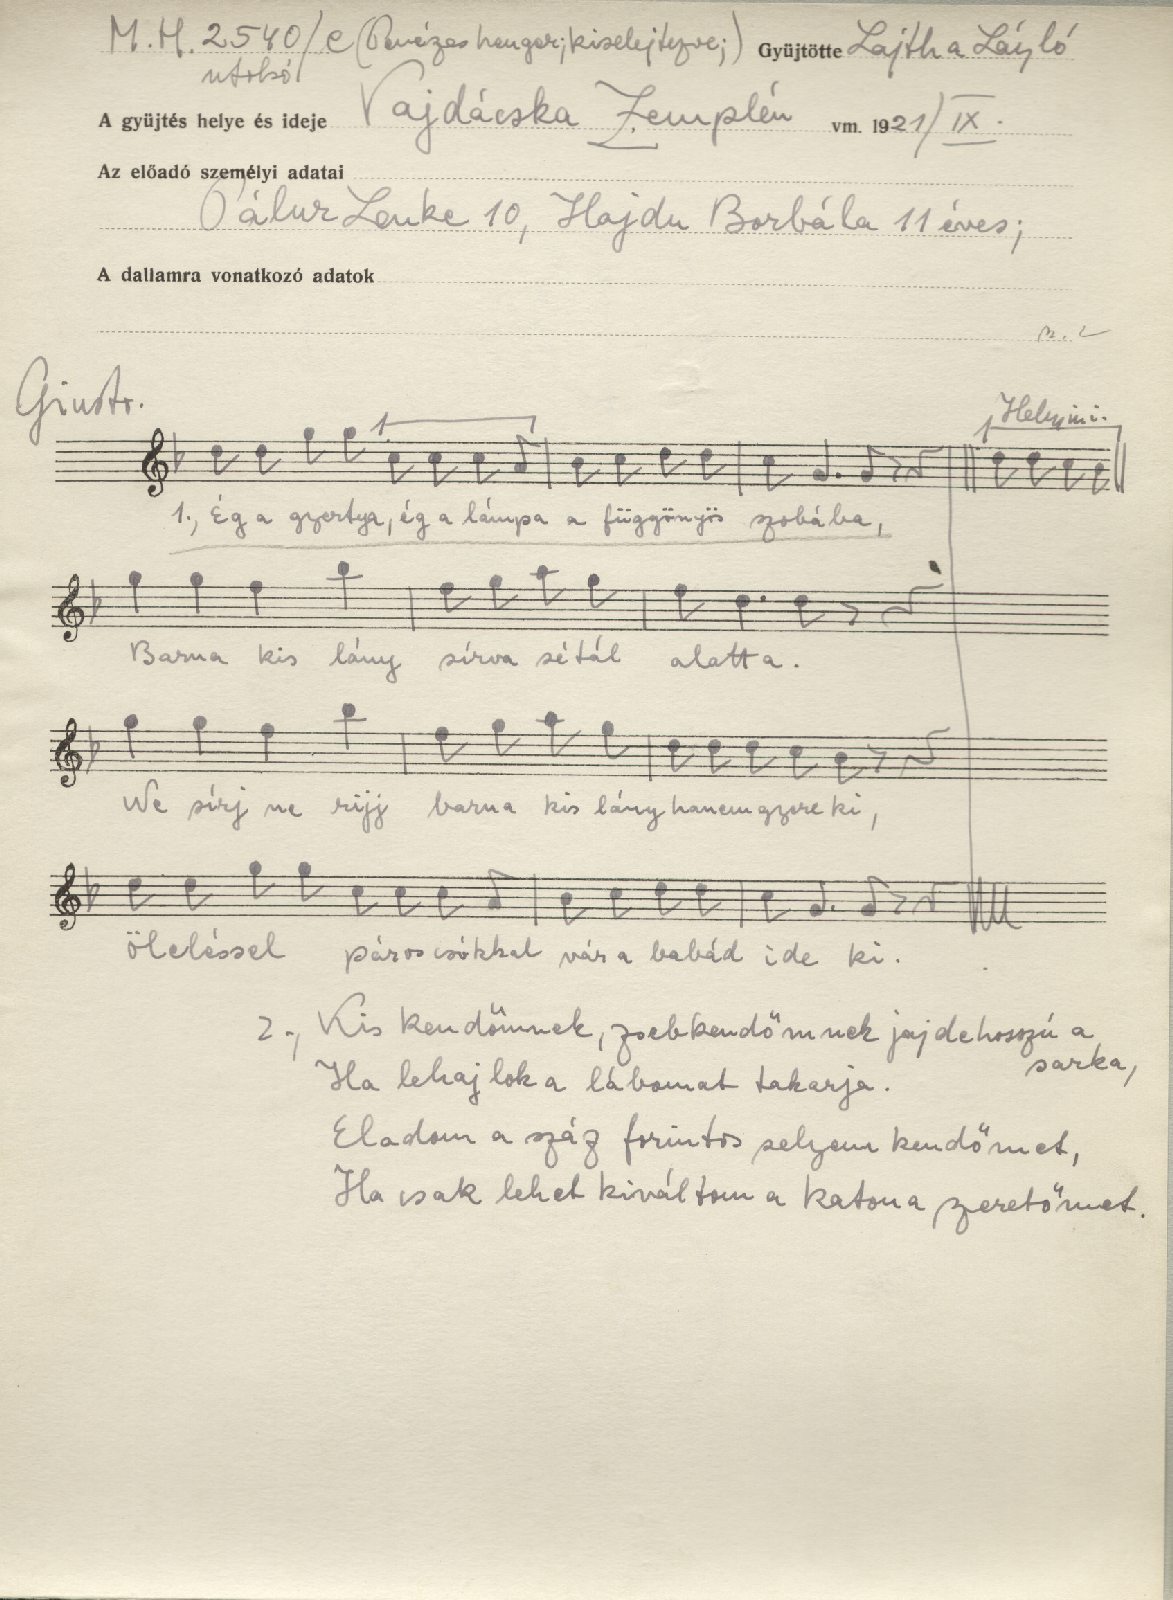 M.H. 2540/e (Penézes henger; kiselejtezve;) Gyüjtötte Lajtha László
utolsó
A gyüjtés helye és ideje Vajdácska Zemplén vm. 1921/IX.
Az előadó személyi adatai
Pálur Lenke 10, Hajdu Borbála 11 éves;
A dallamra vonatkozó adatok
Giusto.
1. Helyini.
1., Ég a gyertya, ég a lámpa a függönyös szobába,
Barna kis lány sírva sétál alatta.
Ne sírj ne rijj barna kis lány hanem gyere ki,
öleléssel páros csókkal vár a babád ide ki.
2., Kis kendőmnek, zsebkendőmnek jaj de hosszú a
sarka,
Ha lehajlok a lábomat takarja.
Eladom a száz forintos selyem kendőmet,
Ha csak lehet kiváltom a katona szeretőmet.